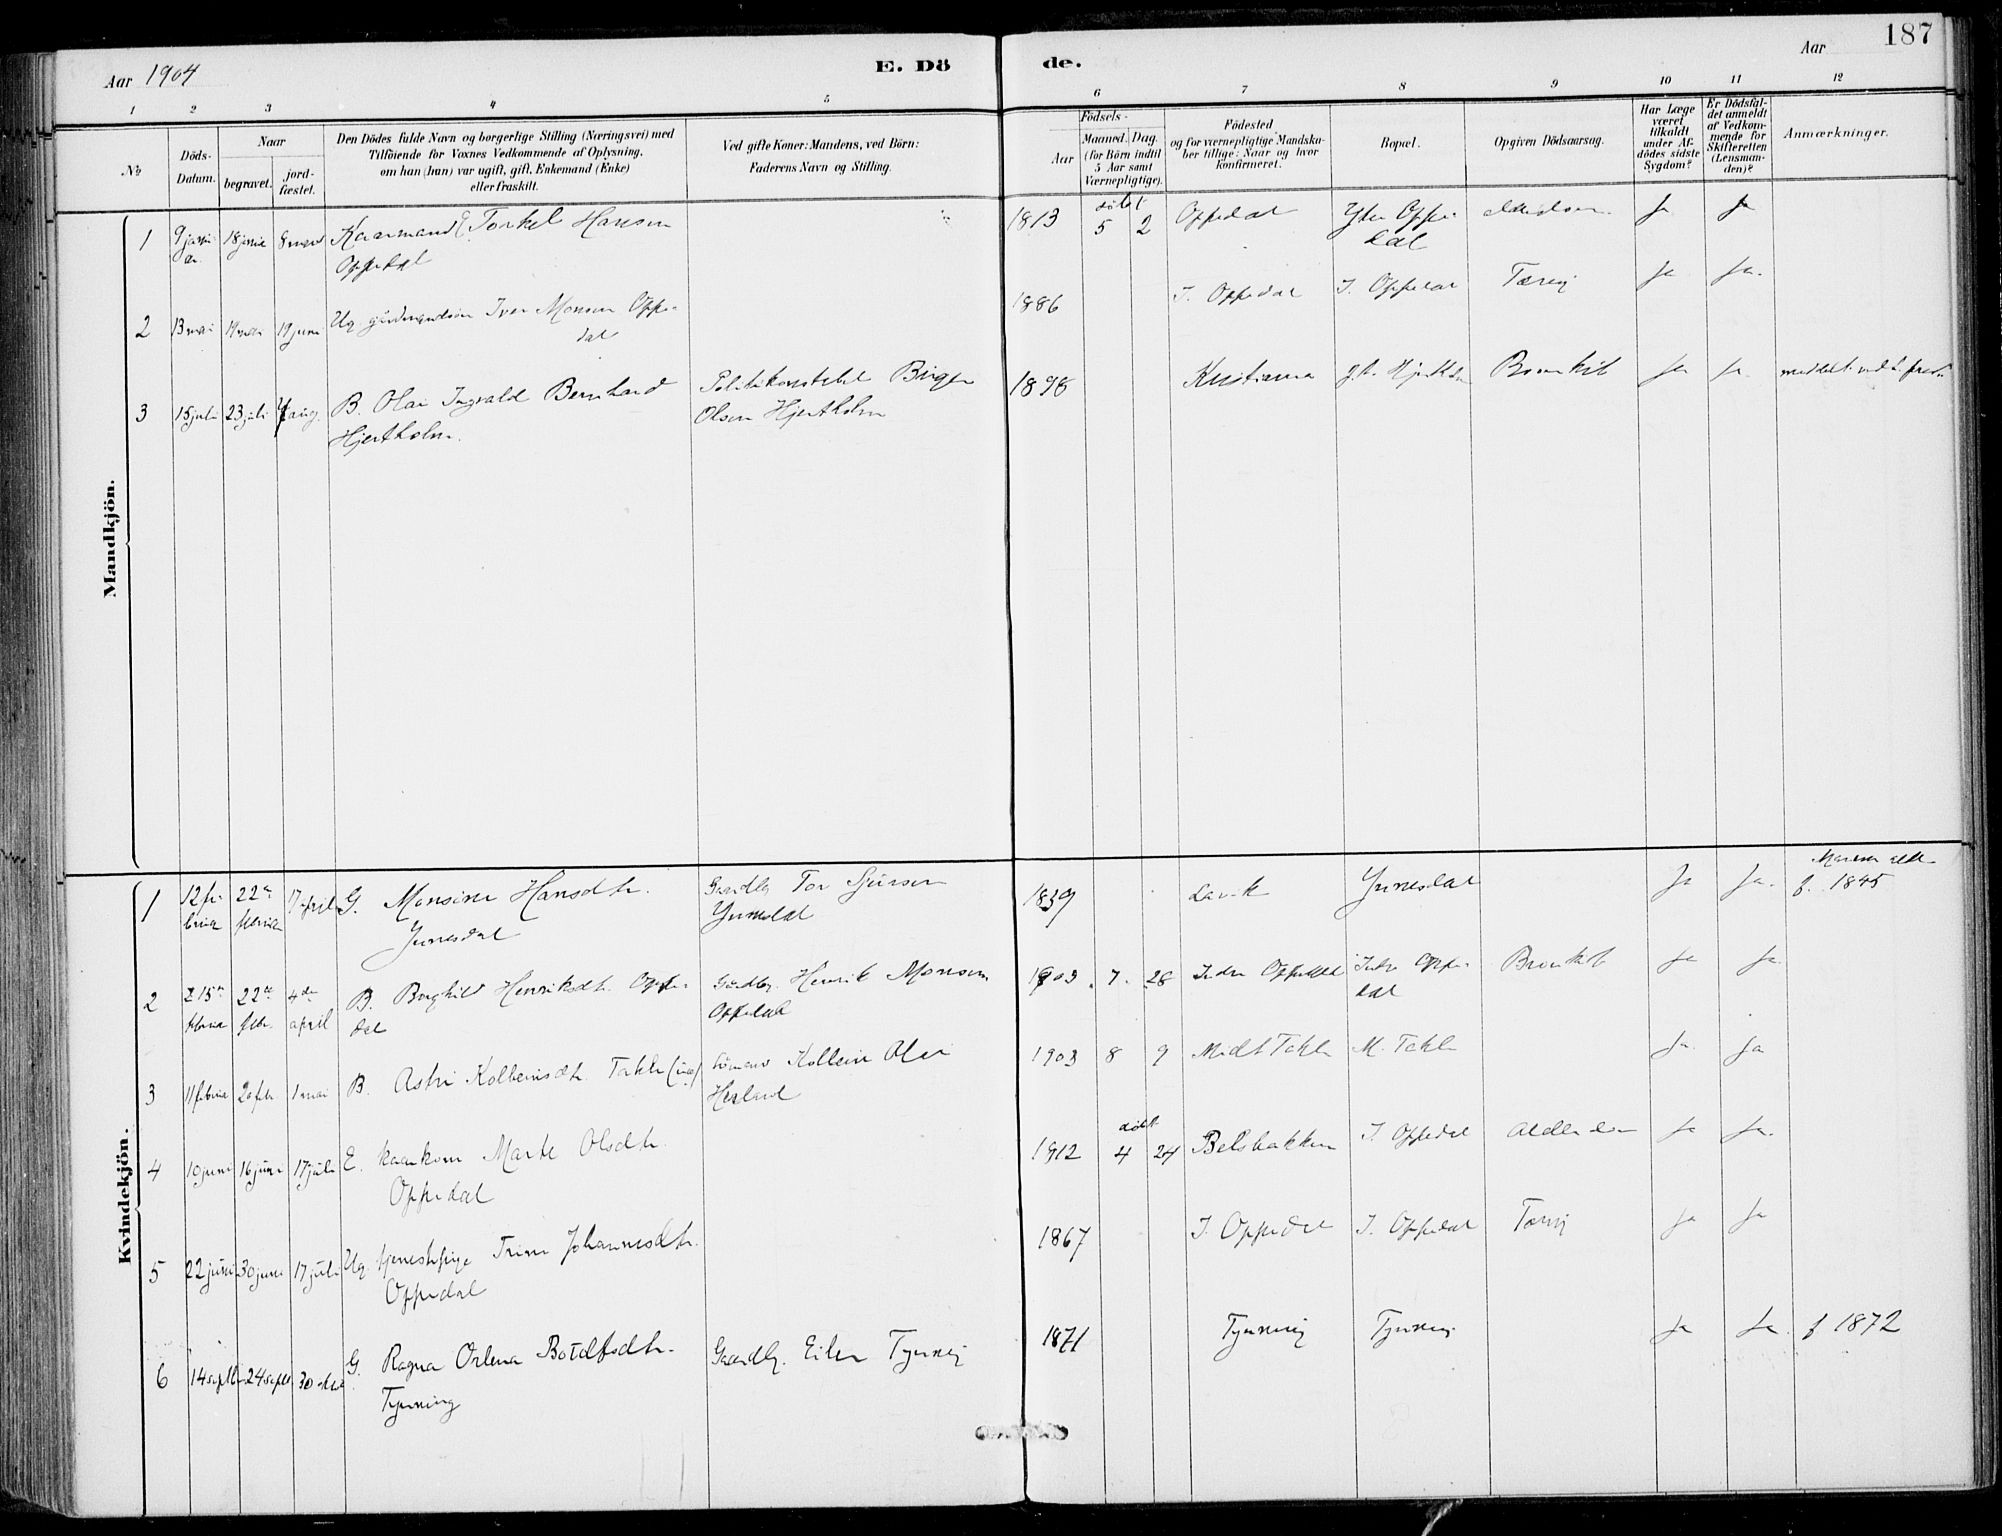 Aar 1904
E. Dö
de.
Aar
187
1 2 3 4 5 6 7 8 9 10 11 12
No
Döds-
Datum.
Naar
begravet.
jord-
fæstet.
Den Dödes fulde Navn og borgerlige Stilling (Næringsvei) med
Tilföiende for Voxnes Vedkommende af Oplysning,
om han (hun) var ugift, gift, Enkemand (Enke)
eller fraskilt.
Ved gifte Koner: Mandens, ved Börn:
Faderens Navn og Stilling.
Födsels-
Aar
Maaned.
Dag.
(for Börn indtil
5 Aar samt
Værnepligtige).
Födested
og for værnepligtige Mandska-
ber tillige: Naar og hvor
konfirmeret.
Bopæl.
Opgiven Dödsaarsag.
Har Læge
været
tilkaldt
under Af-
dödes sidste
Sygdom?
Er Dödsfal-
det anmeldt
af Vedkom-
mende for
Skifteretten
(Lensman-
den)?
Anmærkninger.
Mandkjön.
1
18
Torkel Hansen
Oppedal
1813
døbt
5 2
Oppedal
Ytre Oppe-
dal
Ja
Ja
2
13 mai
19 juni
Ug. Iver Monsen Oppe-
dal
1886
I. Oppedal
I. Oppedal
Tæring
Ja
Ja.
3
15 juli
23 juli
aug.
B. Olai Ingvald Bernhard
Hjertholm.
Politikonstabel Birger
Olsen Hjertholm
Kristiania
Bronkit
Ja
Ja.
Kvindekjön.
1
22de
17 april
G. Monsine Hansdtr.
Ynnesdal
Gaardbr. Tor Sjursen
Ynnesdal
1839
Lavik
Ynnesdal
Ja
Ja.
f. 1845
2
15de
22de
febr.
4de
april
B. Borghild Henriksdtr. Oppe-
dal
Gardbr. Henrik Monsen
Oppedal
1903 7 28
Indre Oppedal
Indre Oppe-
dal
Bronkit
Ja
Ja
3
20 feb
1 mai
B. Astri Kolbeinsdtr. Takle
Kolbein Olai
Herland
1903 8 9
Midt Takle
M. Takle
Ja.
Ja
4
10 juni
16 juni
17 juli
E. Marte Olsdtr.
Oppedal
1912
døbt
4 24
Belsbakken
I. Oppedal
Ja
Ja.
5
22 juni
30 juni
17 juli
Ug. tjenestepige Trine Johannesdtr.
Oppedal
1867
I. Oppedal
I. Oppedal
Tæring
Ja
Ja
6
14 septbr
24 septbr
30
G. Ragna Orlena Botolfsdtr.
Tynning
Gaardbr. Eiler Tynning
1871
Tynning
Tynning
Ja
Ja.
f 1872